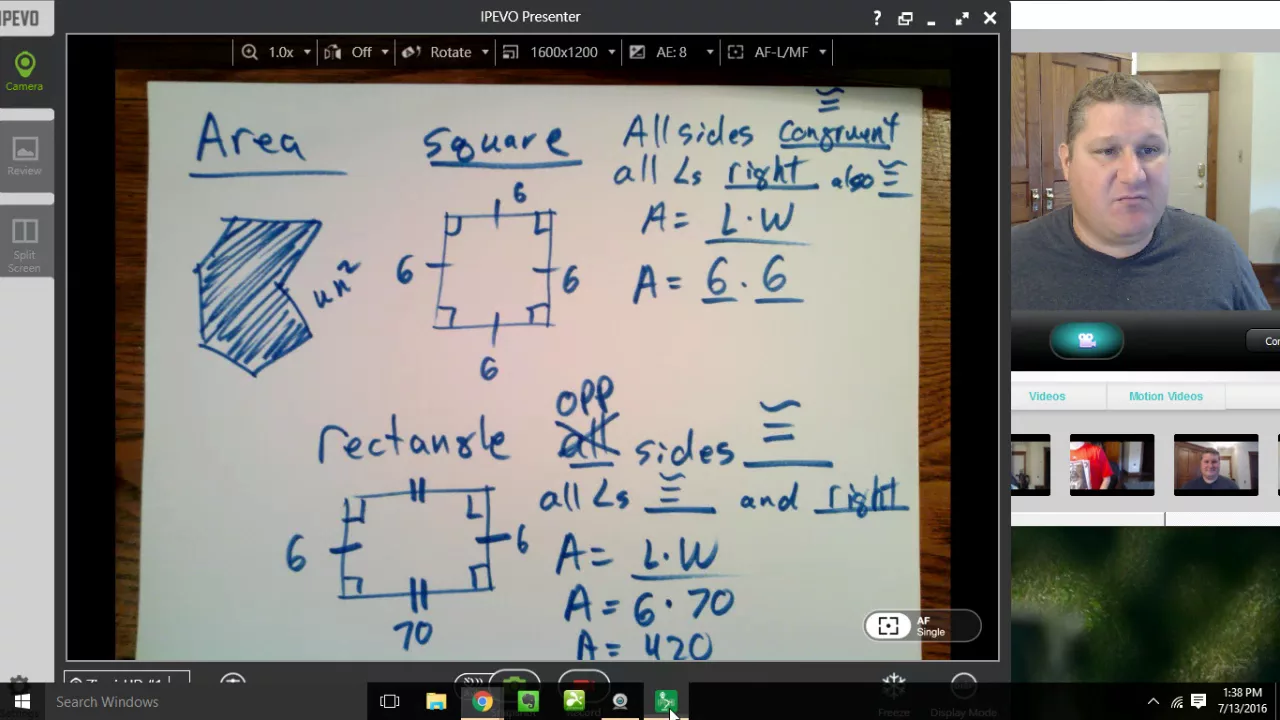 IPEVO
IPEVO Presenter
?
1.0x
Off
Rotate
1600x1200
AE: 8
AF-L/MF
Camera
Review
Split
Screen
Area
un²
square
6
6
6
6
≅
All sides congruent
all ∠s right also ≅
A = L·W
A = 6 · 6
rectangle
6
6
70
opp
all sides ≅
all ∠s ≅ and right
A = L·W
A = 6·70
A = 420
AF
Single
Videos
Motion Videos
Freeze
Display Mode
Search Windows
1:38 PM
7/13/2016